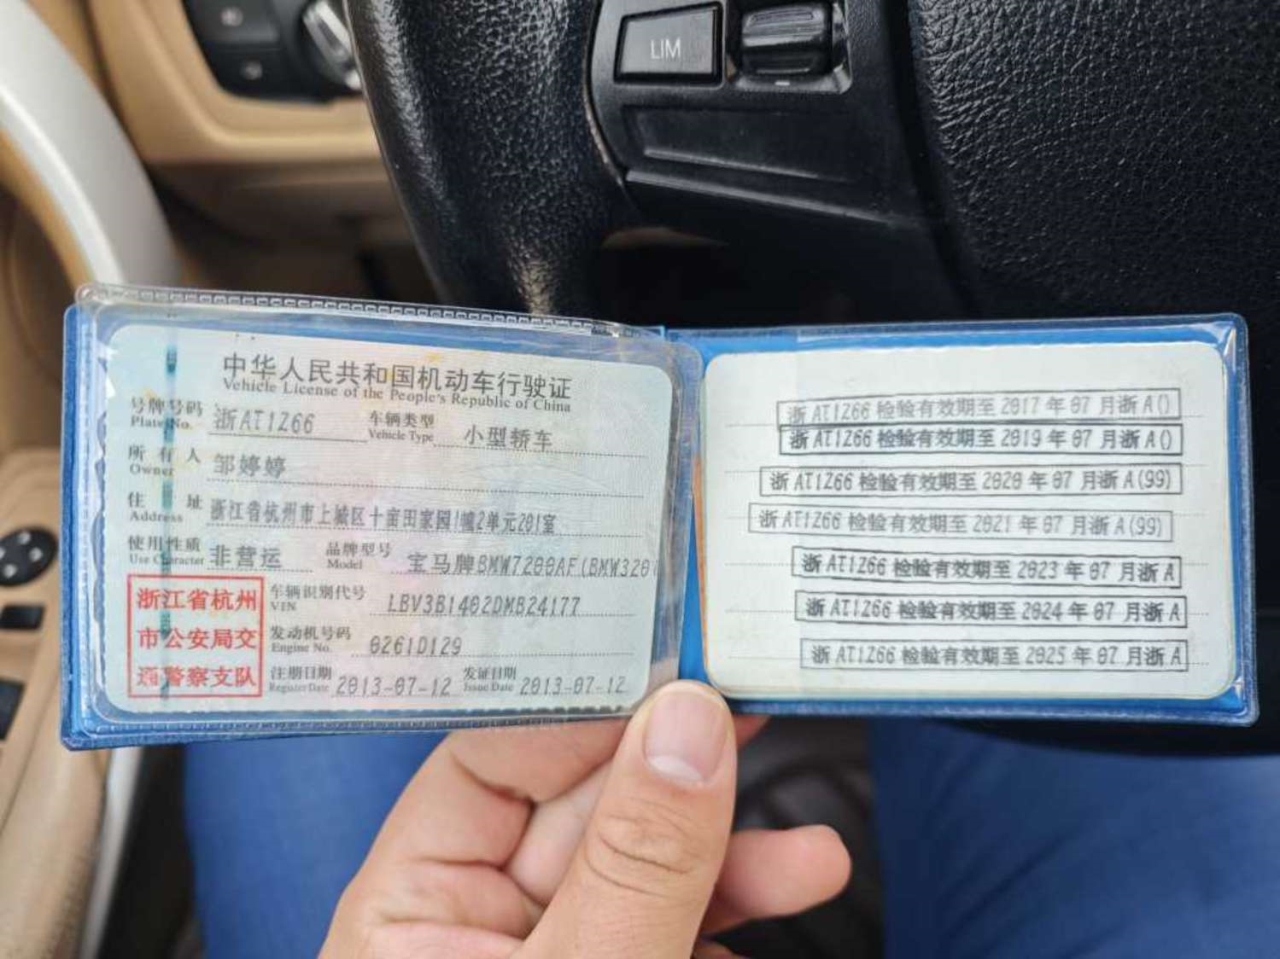 LIM
中华人民共和国机动车行驶证
Vehicle License of the People's Republic of China
号牌号码 浙AT1Z66 车辆类型 小型轿车
Plate No. Vehicle Type
所有人 邹婷婷
Owner
住址 浙江省杭州市上城区十亩田家园1幢2单元201室
Address
使用性质 非营运 品牌型号 宝马牌BMW7200AF(BMW320
Use Character Model
浙江省杭州
市公安局交
通警察支队
车辆识别代号 LBV3B1402DMB24177
VIN
发动机号码 0261D129
Engine No.
注册日期 2013-07-12 发证日期 2013-07-12
Register Date Issue Date
浙AT1Z66检验有效期至2017年07月浙A()
浙AT1Z66检验有效期至2019年07月浙A()
浙AT1Z66检验有效期至2020年07月浙A(99)
浙AT1Z66检验有效期至2021年07月浙A(99)
浙AT1Z66检验有效期至2023年07月浙A
浙AT1Z66检验有效期至2024年07月浙A
浙AT1Z66检验有效期至2025年07月浙A